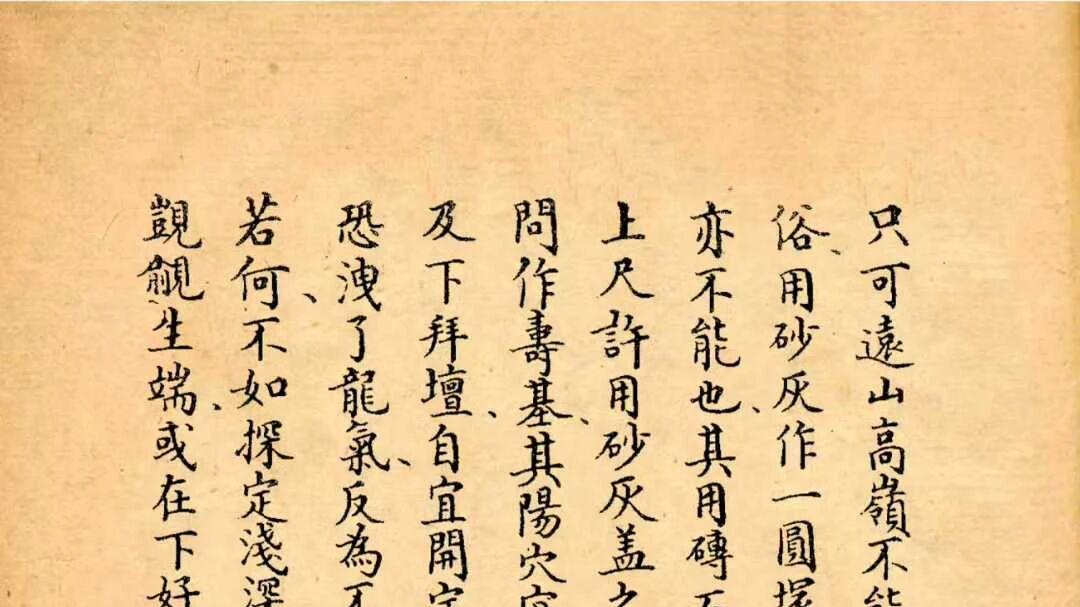 只可遠山高嶺不能
俗、用砂灰作一圓墳
亦不能也、其用磚不
上尺許用砂灰盖之
問作壽基、其陽穴宜
及下拜壇、自宜開定
恐洩了龍氣、反為不
若何、不如探定淺深
覬覦生端、或在下好